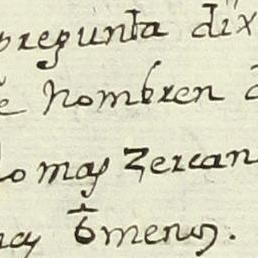 pregunta dix
e nombren d
lo mas zercan
mas o menos.